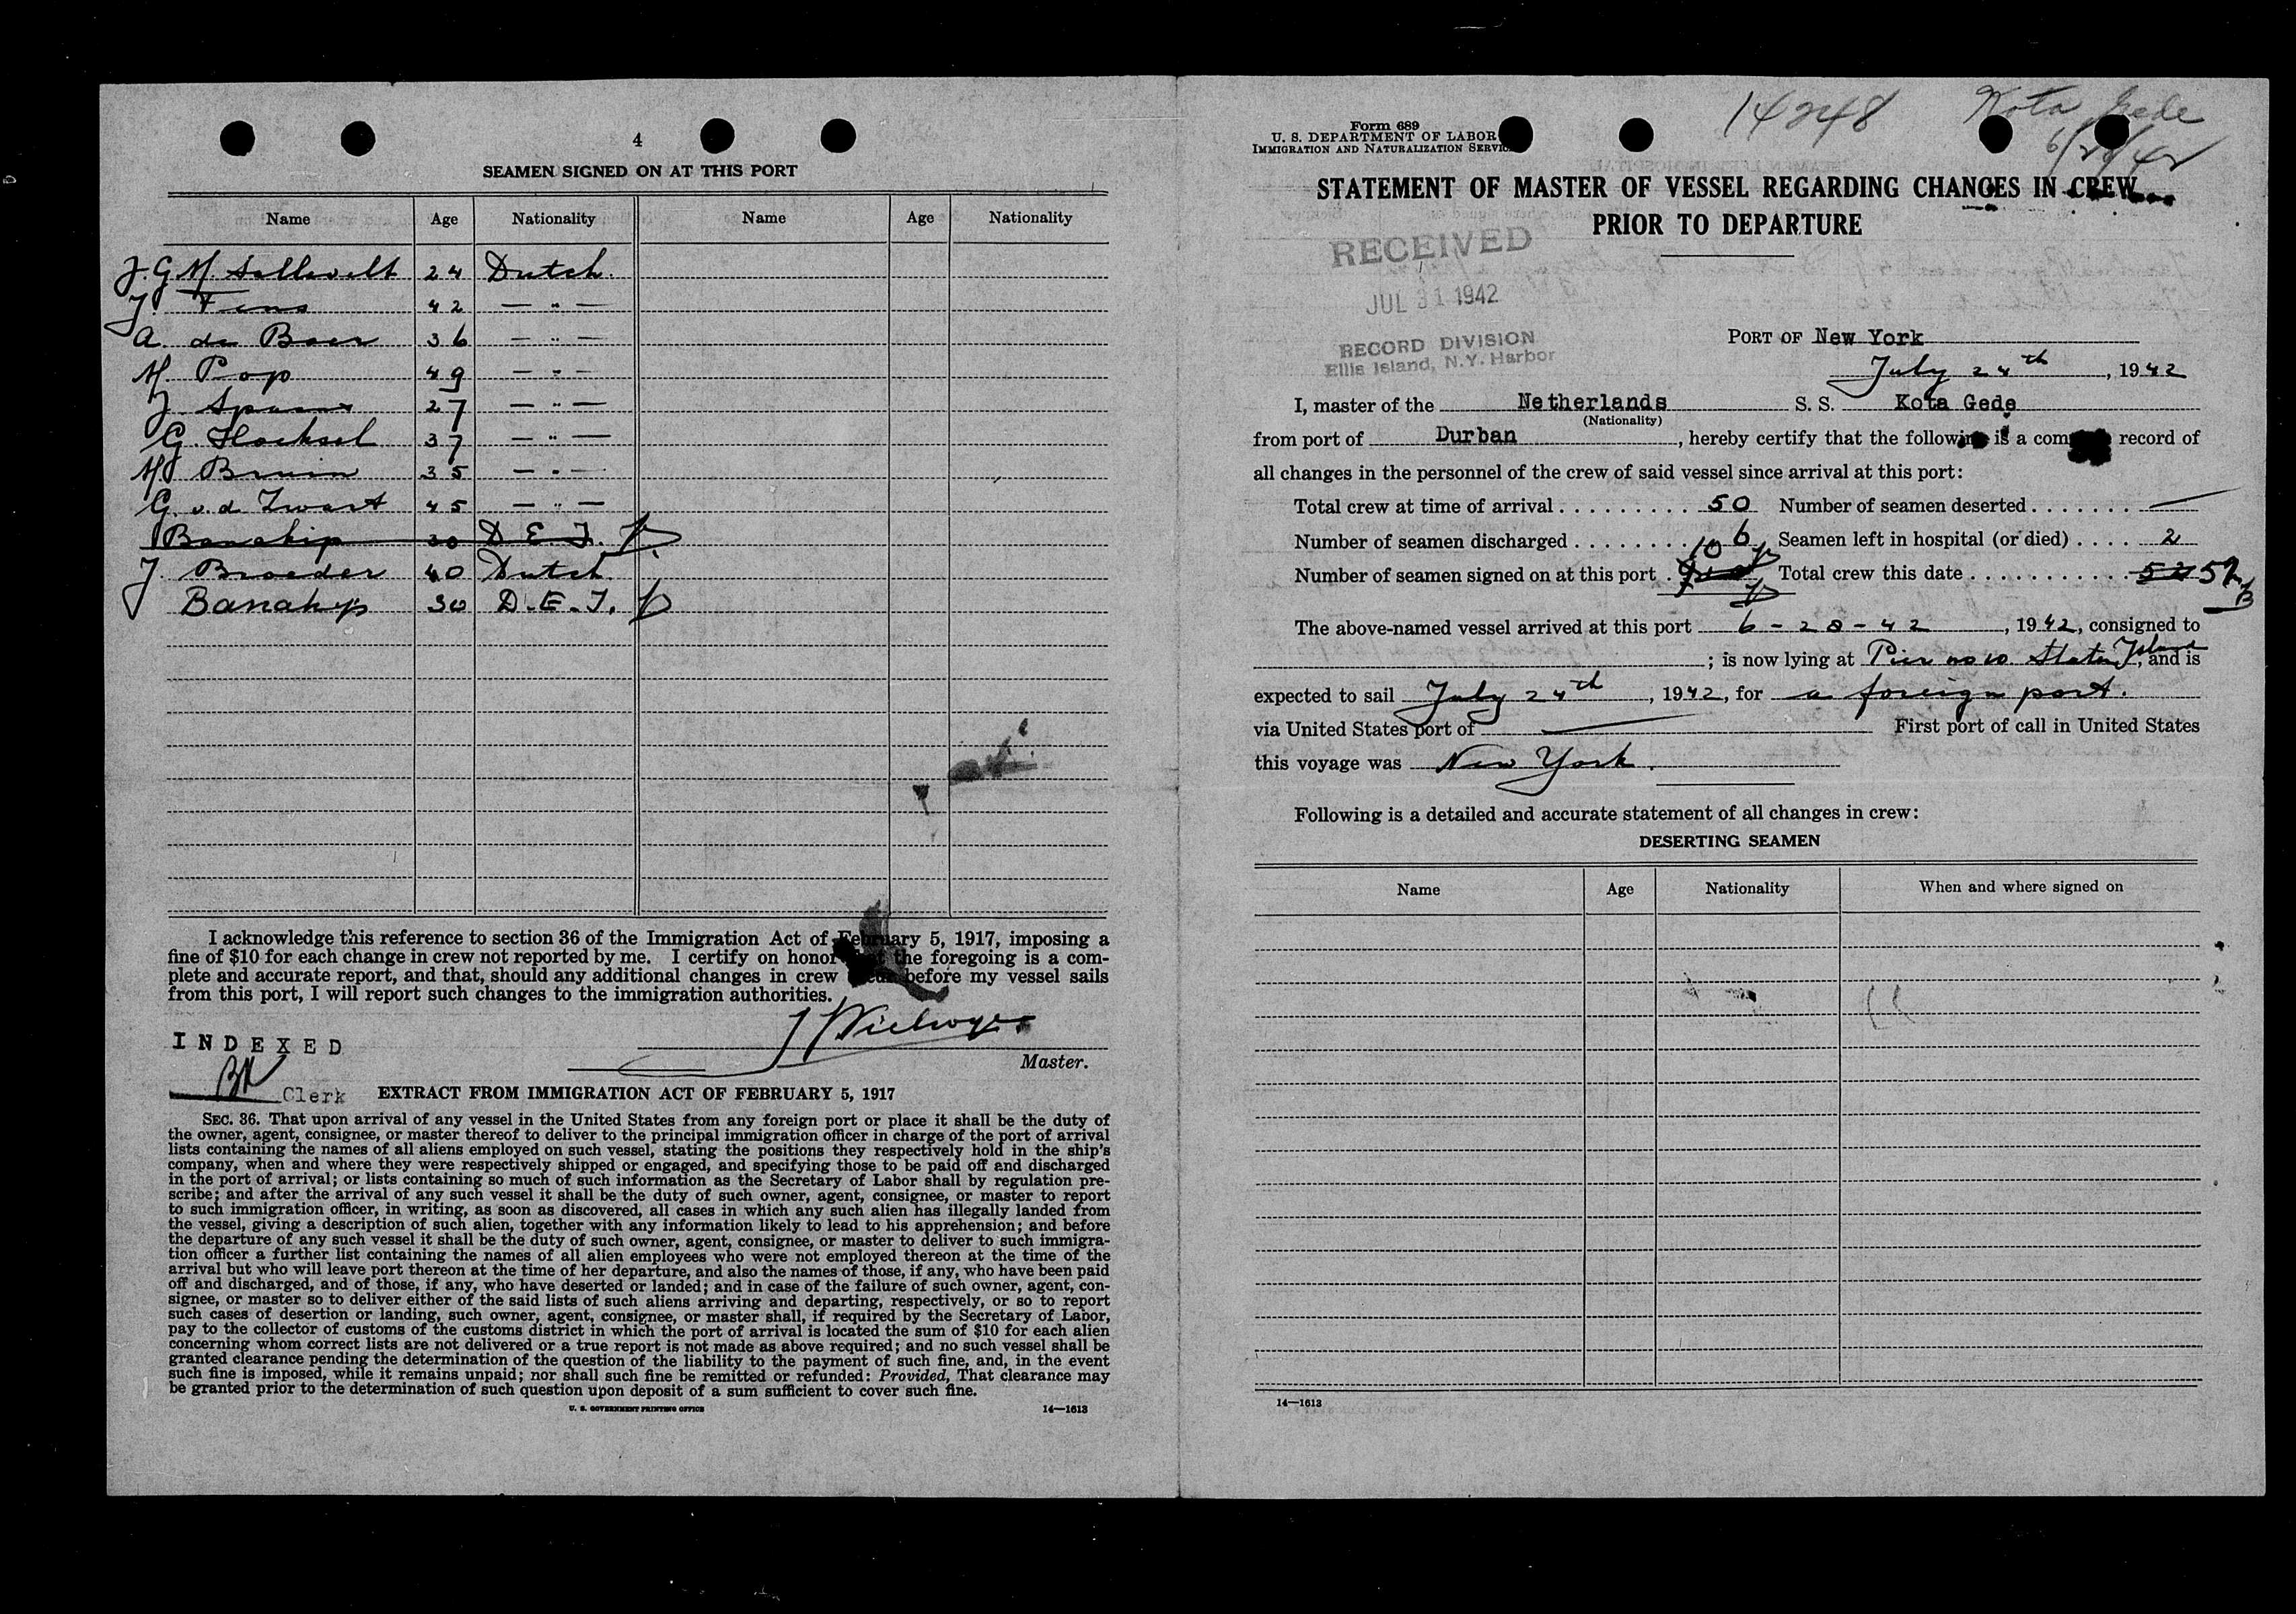 4
SEAMEN SIGNED ON AT THIS PORT
Name Age Nationality Name Age Nationality
J. G. M. 24 Dutch
J. 42 — " —
A. de Boer 36 — " —
H. Pop 49 — " —
J. 27 — " —
G. 37 — " —
H. Bruin 35 — " —
G. v. d. Zwart 45 — " —
30 D E I.
J. Broeder 40 Dutch
30 D.E.I.
I acknowledge this reference to section 36 of the Immigration Act of February 5, 1917, imposing a
fine of $10 for each change in crew not reported by me. I certify on honor the foregoing is a com-
plete and accurate report, and that, should any additional changes in crew before my vessel sails
from this port, I will report such changes to the immigration authorities.
Master.
INDEXED
Clerk
EXTRACT FROM IMMIGRATION ACT OF FEBRUARY 5, 1917
SEC. 36. That upon arrival of any vessel in the United States from any foreign port or place it shall be the duty of
the owner, agent, consignee, or master thereof to deliver to the principal immigration officer in charge of the port of arrival
lists containing the names of all aliens employed on such vessel, stating the positions they respectively hold in the ship's
company, when and where they were respectively shipped or engaged, and specifying those to be paid off and discharged
in the port of arrival; or lists containing so much of such information as the Secretary of Labor shall by regulation pre-
scribe; and after the arrival of any such vessel it shall be the duty of such owner, agent, consignee, or master to report
to such immigration officer, in writing, as soon as discovered, all cases in which any such alien has illegally landed from
the vessel, giving a description of such alien, together with any information likely to lead to his apprehension; and before
the departure of any such vessel it shall be the duty of such owner, agent, consignee, or master to deliver to such immigra-
tion officer a further list containing the names of all alien employees who were not employed thereon at the time of the
arrival but who will leave port thereon at the time of her departure, and also the names of those, if any, who have been paid
off and discharged, and of those, if any, who have deserted or landed; and in case of the failure of such owner, agent, con-
signee, or master so to deliver either of the said lists of such aliens arriving and departing, respectively, or so to report
such cases of desertion or landing, such owner, agent, consignee, or master shall, if required by the Secretary of Labor,
pay to the collector of customs of the customs district in which the port of arrival is located the sum of $10 for each alien
concerning whom correct lists are not delivered or a true report is not made as above required; and no such vessel shall be
granted clearance pending the determination of the question of the liability to the payment of such fine, and, in the event
such fine is imposed, while it remains unpaid; nor shall such fine be remitted or refunded: Provided, That clearance may
be granted prior to the determination of such question upon deposit of a sum sufficient to cover such fine.
U. S. GOVERNMENT PRINTING OFFICE 14—1613
14248 Kota Gede
Form 689
U. S. DEPARTMENT OF LABOR
IMMIGRATION AND NATURALIZATION SERVICE
STATEMENT OF MASTER OF VESSEL REGARDING CHANGES IN CREW
PRIOR TO DEPARTURE
RECEIVED
JUL 31 1942
RECORD DIVISION
Ellis Island, N.Y. Harbor
PORT OF New York
July 24th, 1942
I, master of the Netherlands S. S. Kota Gede
(Nationality)
from port of Durban, hereby certify that the following is a record of
all changes in the personnel of the crew of said vessel since arrival at this port:
Total crew at time of arrival 50 Number of seamen deserted —
Number of seamen discharged 6 Seamen left in hospital (or died) 2
Number of seamen signed on at this port 10 Total crew this date 52
The above-named vessel arrived at this port 6-28-42, 1942, consigned to
; is now lying at Pier no 10 Staten Island, and is
expected to sail July 24th, 1942, for a foreign port.
via United States port of — First port of call in United States
this voyage was New York.
Following is a detailed and accurate statement of all changes in crew:
DESERTING SEAMEN
Name Age Nationality When and where signed on
14—1613